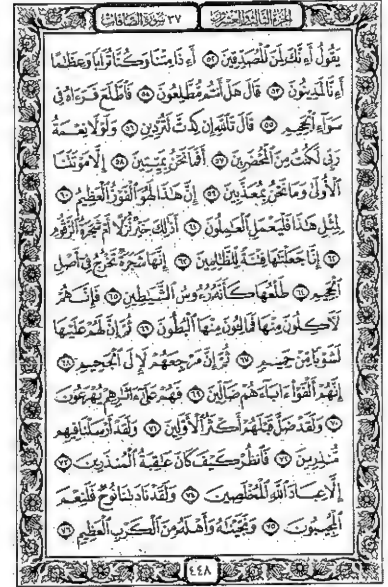 الجزء الثالث والعشرين ٣٧ سورة الصافات
يَقُولُ أَءِنَّكَ لَمِنَ ٱلْمُصَدِّقِينَ ٥٢ أَءِذَا مِتْنَا وَكُنَّا تُرَابًا وَعِظَٰمًا
أَءِنَّا لَمَدِينُونَ ٥٣ قَالَ هَلْ أَنتُم مُّطَّلِعُونَ ٥٤ فَٱطَّلَعَ فَرَءَاهُ فِى
سَوَآءِ ٱلْجَحِيمِ ٥٥ قَالَ تَٱللَّهِ إِن كِدتَّ لَتُرْدِينِ ٥٦ وَلَوْلَا نِعْمَةُ
رَبِّى لَكُنتُ مِنَ ٱلْمُحْضَرِينَ ٥٧ أَفَمَا نَحْنُ بِمَيِّتِينَ ٥٨ إِلَّا مَوْتَتَنَا
ٱلْأُولَىٰ وَمَا نَحْنُ بِمُعَذَّبِينَ ٥٩ إِنَّ هَٰذَا لَهُوَ ٱلْفَوْزُ ٱلْعَظِيمُ ٦٠
لِمِثْلِ هَٰذَا فَلْيَعْمَلِ ٱلْعَٰمِلُونَ ٦١ أَذَٰلِكَ خَيْرٌ نُّزُلًا أَمْ شَجَرَةُ ٱلزَّقُّومِ
٦٢ إِنَّا جَعَلْنَٰهَا فِتْنَةً لِّلظَّٰلِمِينَ ٦٣ إِنَّهَا شَجَرَةٌ تَخْرُجُ فِىٓ أَصْلِ
ٱلْجَحِيمِ ٦٤ طَلْعُهَا كَأَنَّهُۥ رُءُوسُ ٱلشَّيَٰطِينِ ٦٥ فَإِنَّهُمْ
لَءَاكِلُونَ مِنْهَا فَمَالِـُٔونَ مِنْهَا ٱلْبُطُونَ ٦٦ ثُمَّ إِنَّ لَهُمْ عَلَيْهَا
لَشَوْبًا مِّنْ حَمِيمٍ ٦٧ ثُمَّ إِنَّ مَرْجِعَهُمْ لَإِلَى ٱلْجَحِيمِ ٦٨
إِنَّهُمْ أَلْفَوْا۟ ءَابَآءَهُمْ ضَآلِّينَ ٦٩ فَهُمْ عَلَىٰٓ ءَاثَٰرِهِمْ يُهْرَعُونَ
٧٠ وَلَقَدْ ضَلَّ قَبْلَهُمْ أَكْثَرُ ٱلْأَوَّلِينَ ٧١ وَلَقَدْ أَرْسَلْنَا فِيهِم
مُّنذِرِينَ ٧٢ فَٱنظُرْ كَيْفَ كَانَ عَٰقِبَةُ ٱلْمُنذَرِينَ ٧٣
إِلَّا عِبَادَ ٱللَّهِ ٱلْمُخْلَصِينَ ٧٤ وَلَقَدْ نَادَىٰنَا نُوحٌ فَلَنِعْمَ
ٱلْمُجِيبُونَ ٧٥ وَنَجَّيْنَٰهُ وَأَهْلَهُۥ مِنَ ٱلْكَرْبِ ٱلْعَظِيمِ ٧٦
٤٤٨